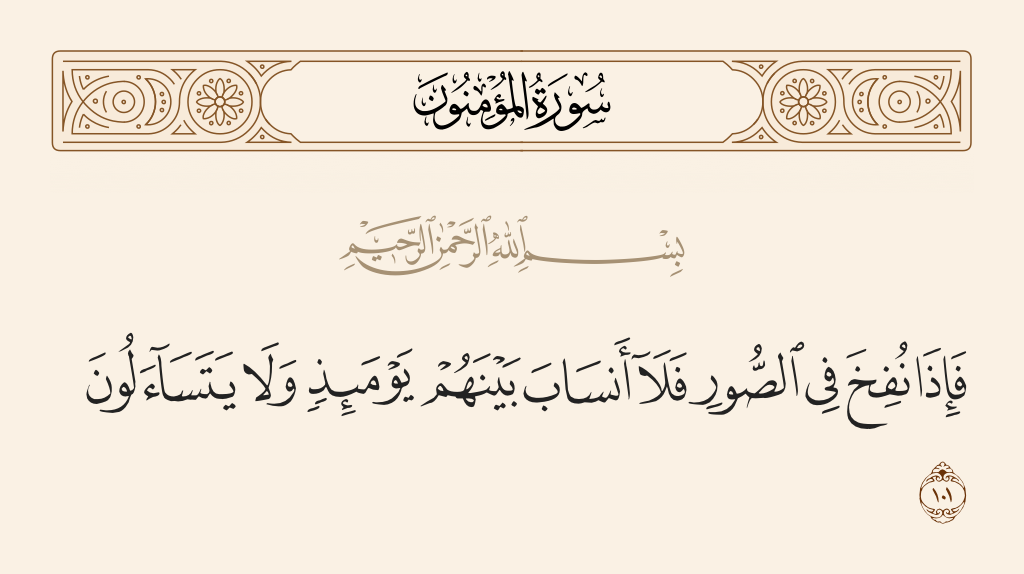 سُورَةُ المُؤْمِنُونَ
بِسْمِ ٱللَّهِ ٱلرَّحْمَٰنِ ٱلرَّحِيمِ
فَإِذَا نُفِخَ فِى ٱلصُّورِ فَلَآ أَنسَابَ بَيْنَهُمْ يَوْمَئِذٍ وَلَا يَتَسَآءَلُونَ
١٠١